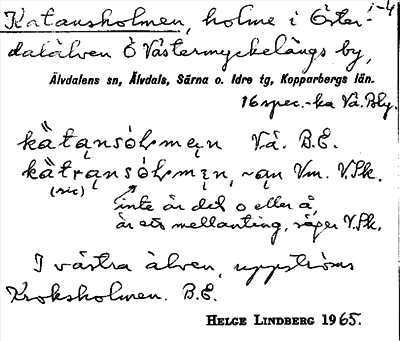 Katansholmen, holme i Öster- 1-4
dalälven Ö Västermyckelängs by,
Älvdalens sn, Älvdals, Särna o. Idre tg, Kopparbergs län.
16 spec.-ka Vä. Bly.
kätąnsòlmęn Vä. B.E.
kätrąnsòlmęn, ~ąn Vm. V.Sk.
(sic)
inte är det o eller å,
är ett mellanting, säger V.Sk.
I västra älven, uppströms
Kroksholmen. B.E.
HELGE LINDBERG 1965.